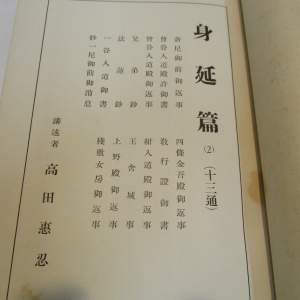 身延篇 (2) (十三通)
新尼御前御返事
曾谷入道殿許御書
曾谷入道殿御返事
兄弟鈔
法蓮鈔
一谷入道御書
妙一尼御前御消息
四條金吾殿御返事
教行證御書
入道殿御返事
王舍城事
上野殿御返事
棧敷女房御返事
講述者 高田惠忍